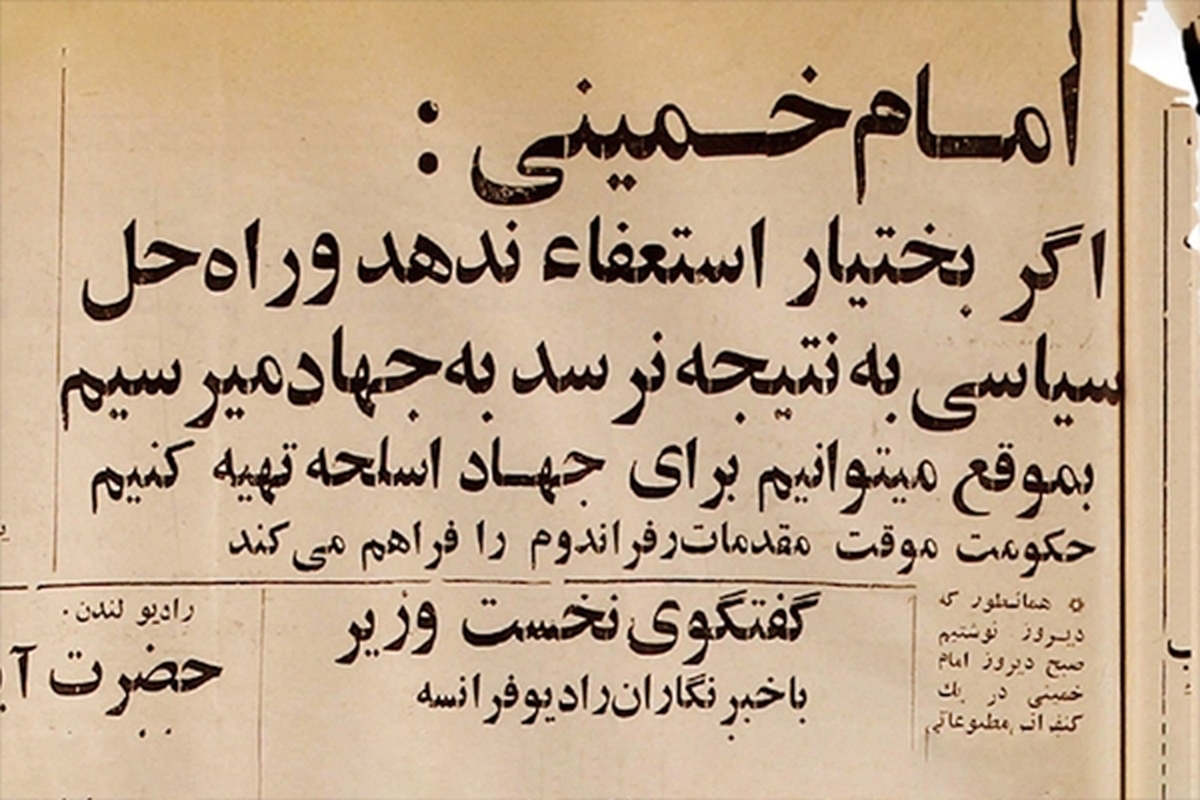 امام خمینی :
اگر بختیار استعفاء ندهد و راه حل
سیاسی به نتیجه نرسد به جهاد میرسیم
بموقع میتوانیم برای جهاد اسلحه تهیه کنیم
حکومت موقت مقدمات رفراندوم را فراهم می کند
همانطور که
دیروز نوشتیم
صبح دیروز امام
خمینی در یک
کنفرانس مطبوعاتی
گفتگوی نخست وزیر
با خبرنگاران رادیو فرانسه
رادیو لندن
حضرت